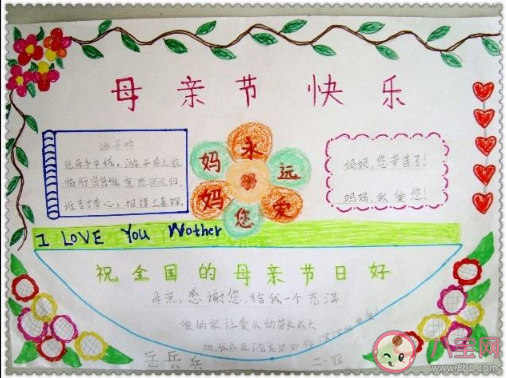 母亲节快乐
游子吟
慈母手中线，游子身上衣
临行密密缝，意恐迟迟归，
谁言寸草心，报得三春晖。
永
妈 远
妈 爱
您
妈妈，您辛苦了！
妈妈，我爱您！
I LOVE You Wother
祝全国的母亲节日好
母亲，感谢您，给我一个充满
八宝网
www.8bb.com